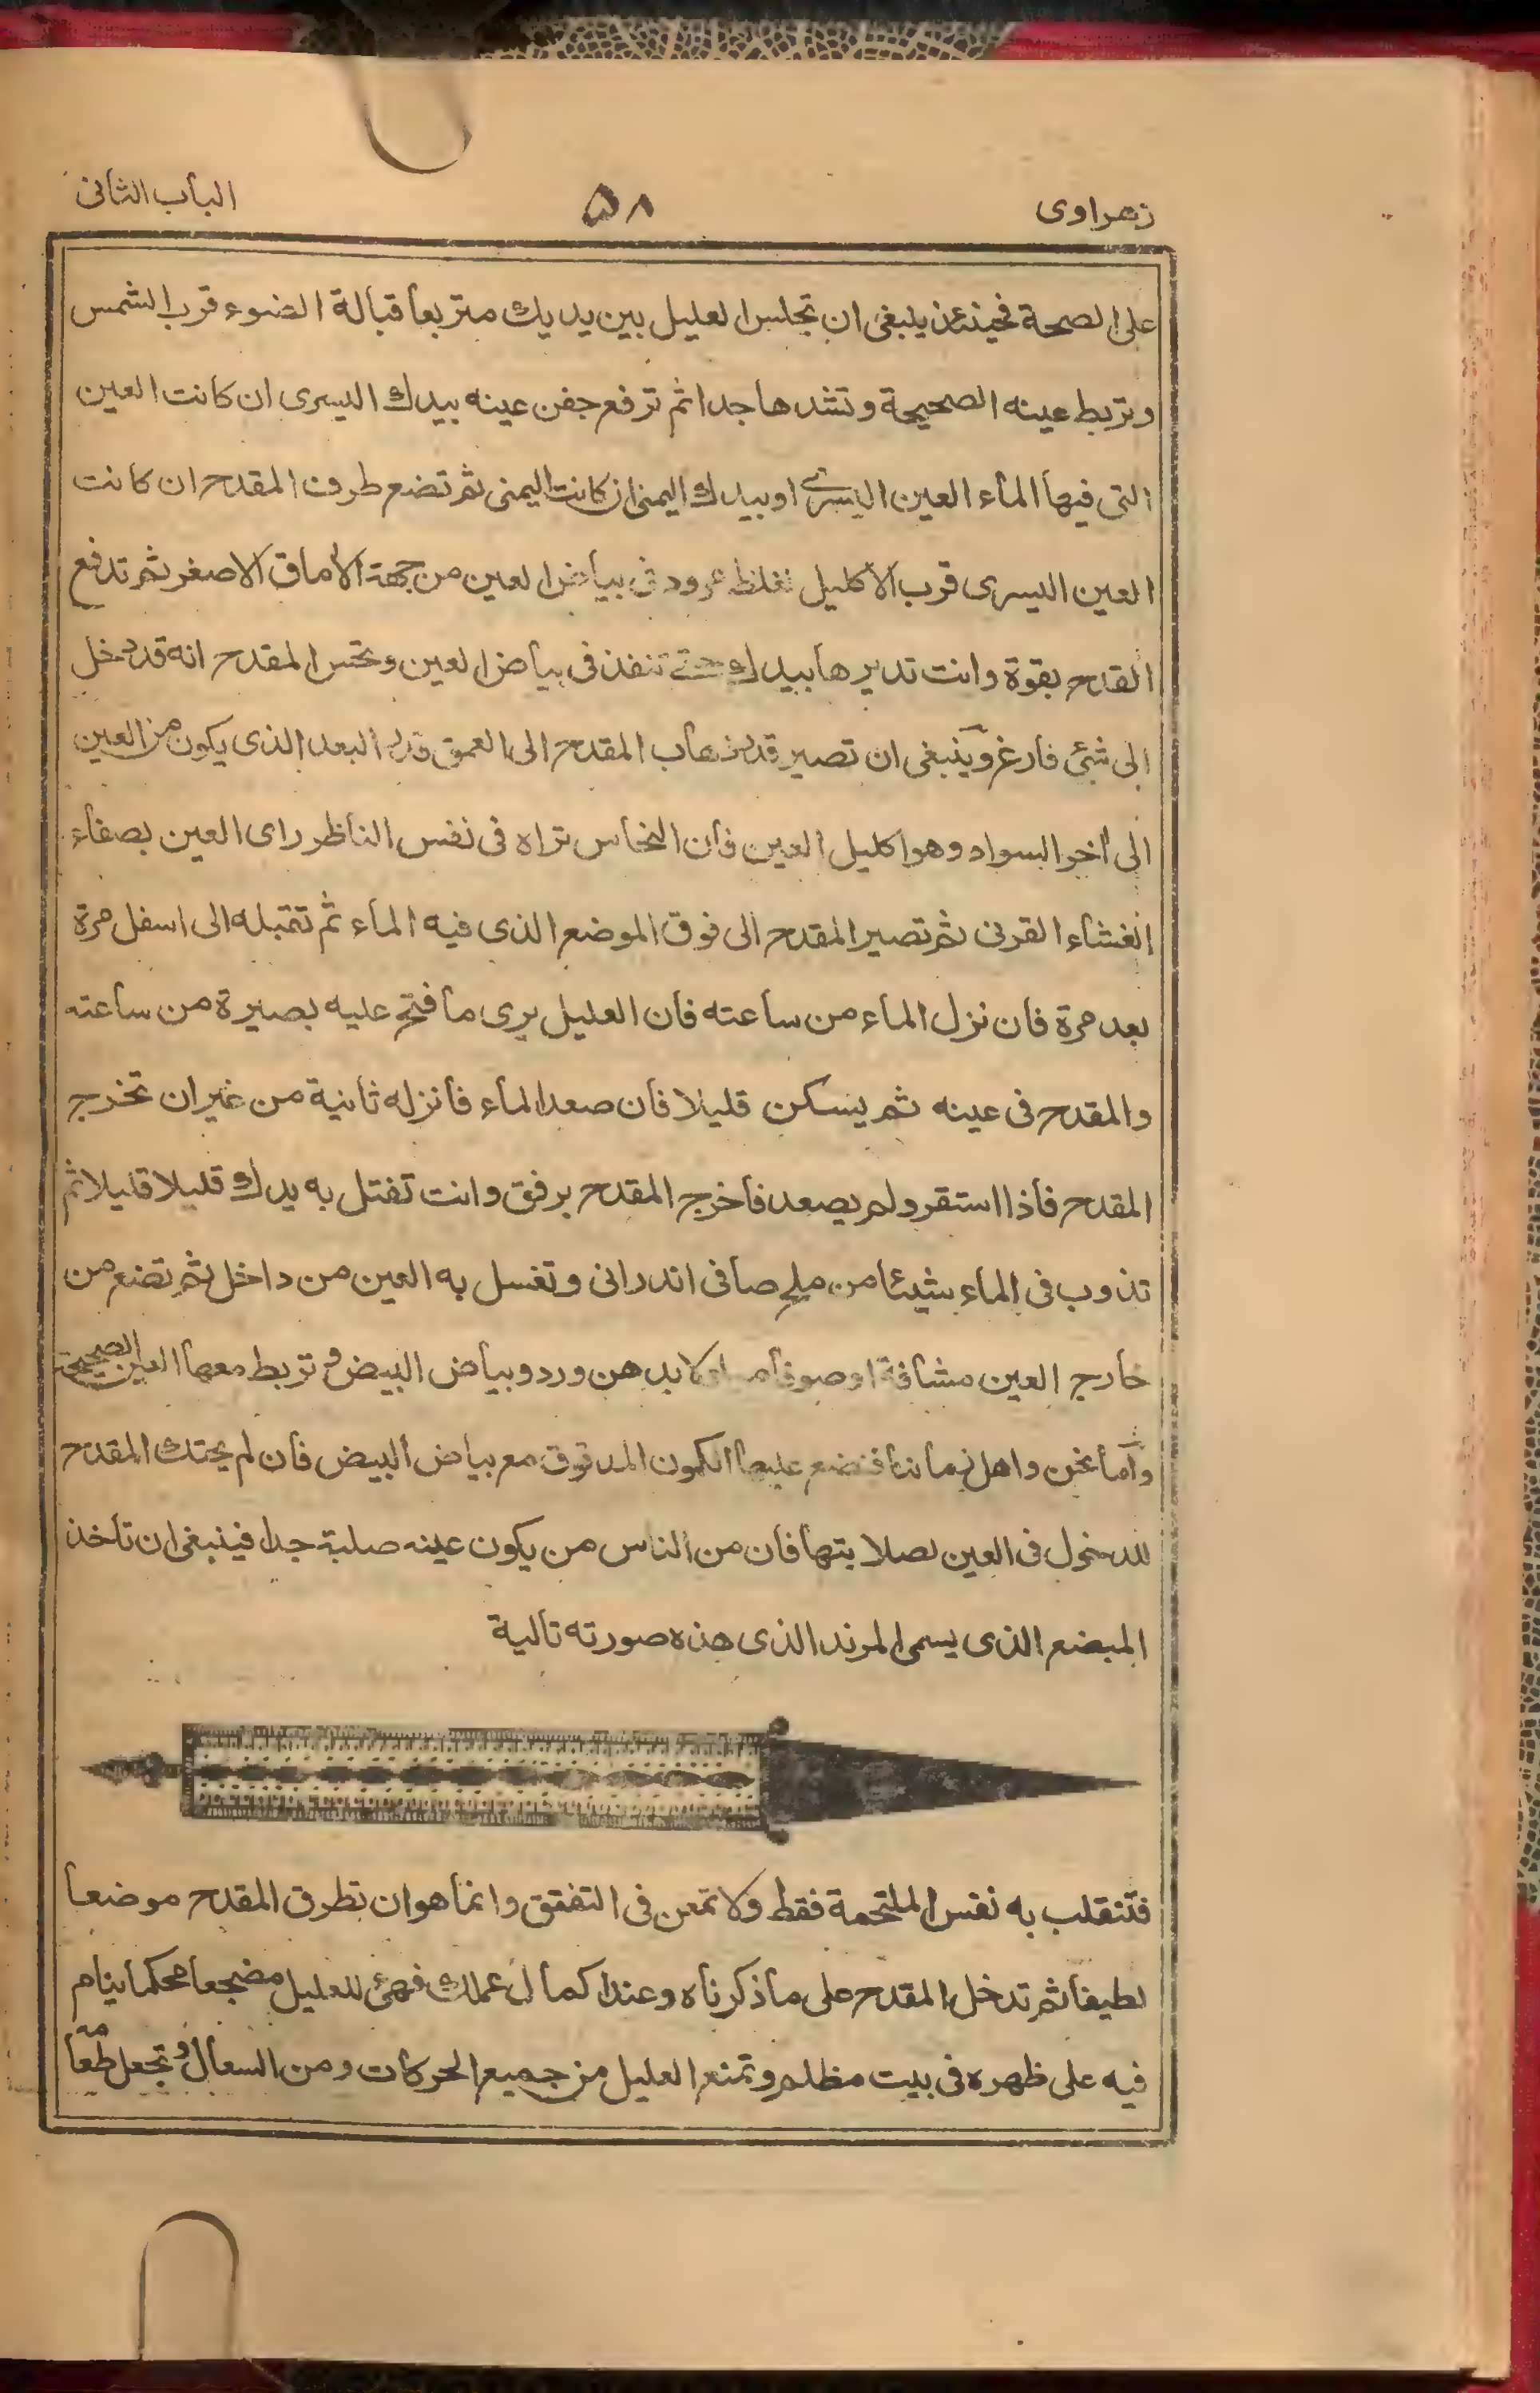 زهراوى ٥٨ الباب الثانى
على الصحة فحينئذ ينبغى ان تجلس العليل بين يديك متربعا قبالة الضوء قرب الشمس
وتربط عينه الصحيحة وتشدها جدا ثم ترفع جفن عينه بيدك اليسرى ان كانت العين
التى فيها الماء العين اليسرى او بيدك اليمنى ان كانت اليمنى ثم تضع طرف المقدح ان كانت
العين اليسرى قرب الاكليل بغلظ مرود فى بياض العين من جهة الاماق الاصغر ثم تدفع
القدح بقوة وانت تديرها بيدك حتى تنفذ فى بياض العين وتحس المقدح انه قد دخل
الى شئ فارغ وينبغى ان تصير قدر ذهاب المقدح الى العمق قدر البعد الذى يكون من العين
الى أخر السواد وهو اكليل العين فان النحاس تراه فى نفس الناظر راى العين بصفاء
الغشاء القرنى ثم تصير المقدح الى فوق الموضع الذى فيه الماء ثم تقتبله الى اسفل مرة
بعد مرة فان نزل الماء من ساعته فان العليل يرى ما فتح عليه بصيرة من ساعته
والمقدح فى عينه ثم يسكن قليلا فان صعد الماء فانزله ثانية من غير ان تخرج
المقدح فاذا استقر ولم يصعد فاخرج المقدح برفق وانت تفتل به يدك قليلا قليلا ثم
تذوب فى الماء شيئا من ملح صافى اندرانى وتغسل به العين من داخل ثم تضع من
خارج العين مشاقة او صوفا بدهن ورد وبياض البيض وتربط معها العين الصحيحة
وأما نحن واهل زماننا فنضع عليها الكمون المدقوق مع بياض البيض فان لم يحتك المقدح
للدخول فى العين لصلابتها فان من الناس من يكون عينه صلبة جدا فينبغى ان تأخذ
المبضع الذى يسمى المرند الذى هذه صورته تالية
فتنقلب به نفس الملتحمة فقط ولا تمعن فى التفقق وانما هو ان تطرق المقدح موضعا
لطيفا ثم تدخل المقدح على ما ذكرناه وعند اكمال عملك فهئ للعليل مضجعا محكما ينام
فيه على ظهره فى بيت مظلم وتمنع العليل من جميع الحركات ومن السعال وتجعل طعامه